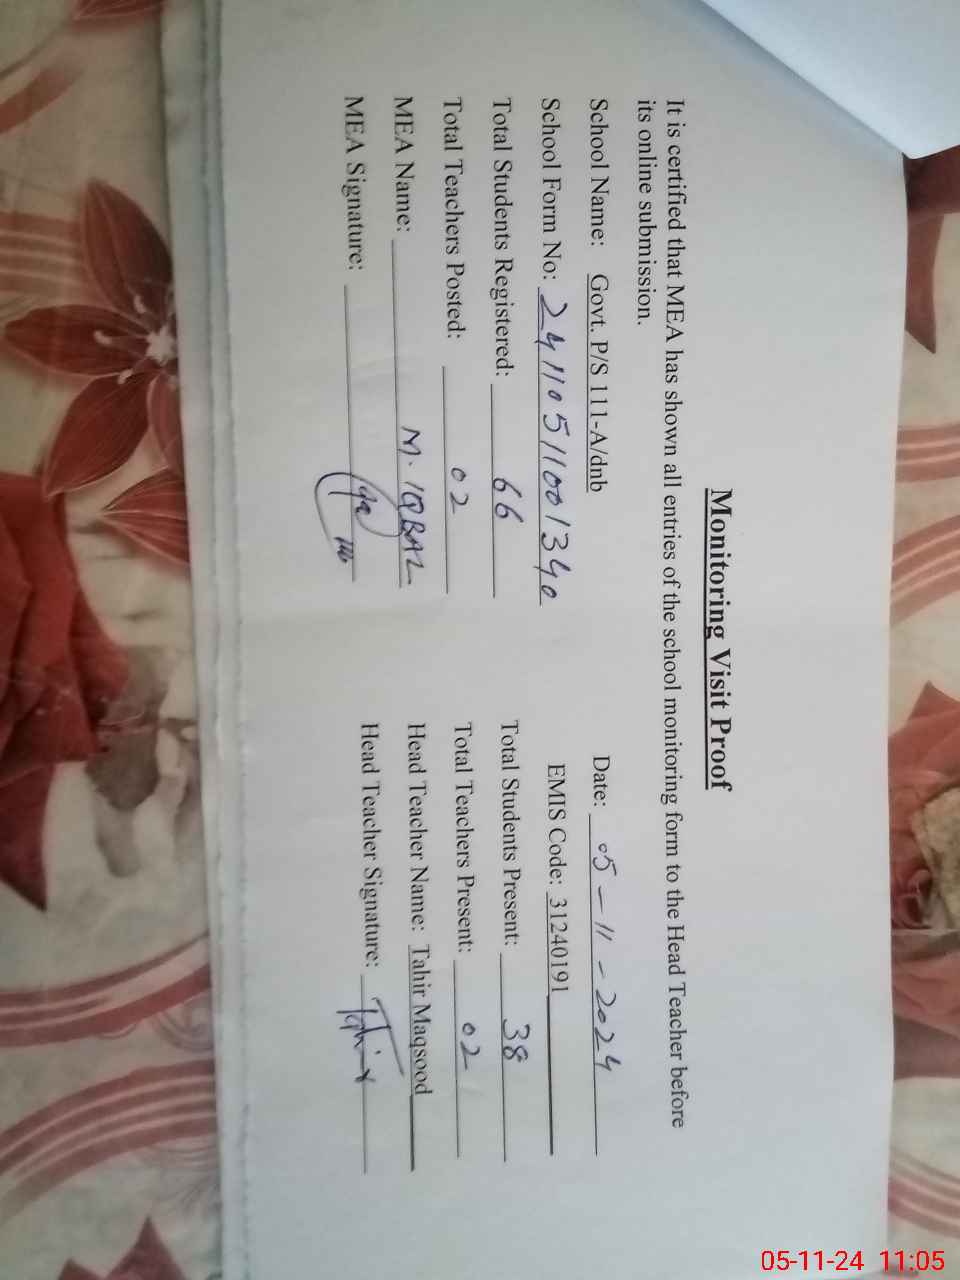 Monitoring Visit Proof
It is certified that MEA has shown all entries of the school monitoring form to the Head Teacher before
its online submission.
School Name: Govt. P/S 111-A/dnb Date: 05-11-2024
School Form No: 24110511001340 EMIS Code: 31240191
Total Students Registered: 66 Total Students Present: 38
Total Teachers Posted: 02 Total Teachers Present: 02
MEA Name: M. IQBAL Head Teacher Name: Tahir Maqsood
MEA Signature: Head Teacher Signature: Tahir
05-11-24 11:05